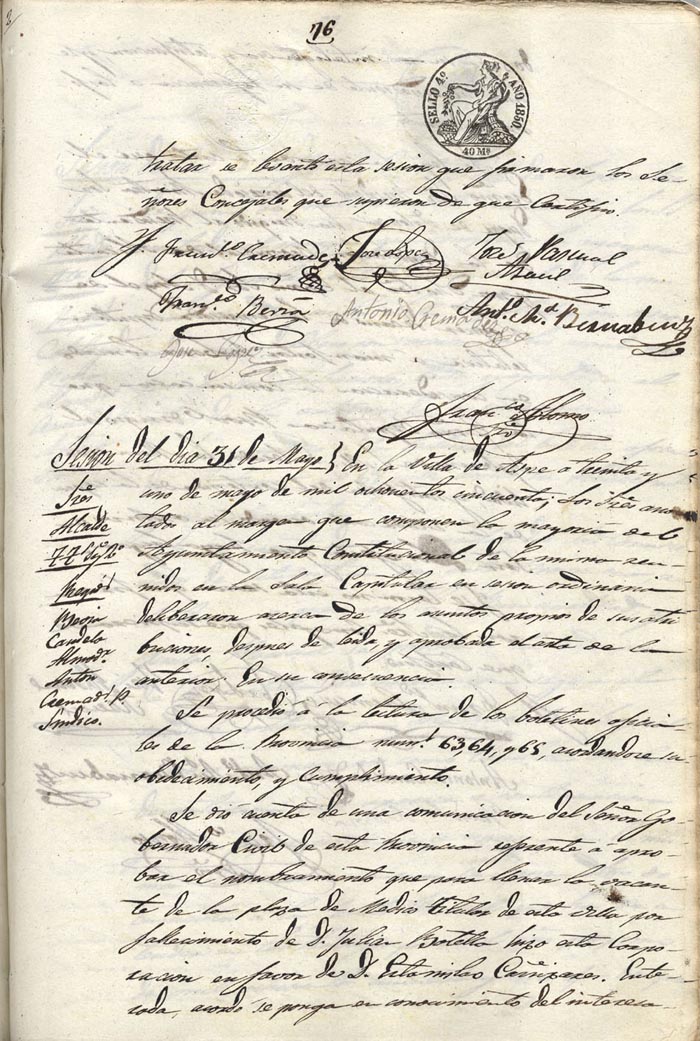 76
SELLO 4º AÑO 1850
40 Ms
tratar se levantó esta sesion que firmaron los Se-
ñores Concejales que supieron de que Certifico.
Franco Cremades José Lopez José Pascual
Franco Berná Antonio Cremades Anto Ma Bernabeu
Franco Alonso
Sesion del dia 31 de Mayo} En la Villa de Aspe a treinta y
uno de mayo de mil ochocientos cincuenta; los Sres ano-
tados al margen que componen la mayoria del
Ayuntamiento Constitucional de la misma reu-
nidos en la Sala Capitular en sesion ordinaria
deliberaron acerca de los asuntos propios de sus atri
buciones, despues de leida, y aprobada el acta de la
anterior. En su consecuencia
Sres
Alcalde
Regid
Berna
Candela
Almodr
Anton
Cremads P.
Sindico.
Se procedió á la lectura de los boletines oficia-
les de la Provincia num 63, 64, y 65, acordandose su
obedecimiento, y cumplimiento.
Se dió cuenta de una comunicacion del Señor Go-
bernador Civil de esta Provincia referente á apro-
bar el nombramiento que para llenar la vacan-
te de la plaza de Medico titular de esta villa por
fallecimiento de D. Julian Botella hizo esta Corpo-
racion en favor de D. Estanislao Cañizares. Ente-
rada, acordó se ponga en conocimiento del interesa-